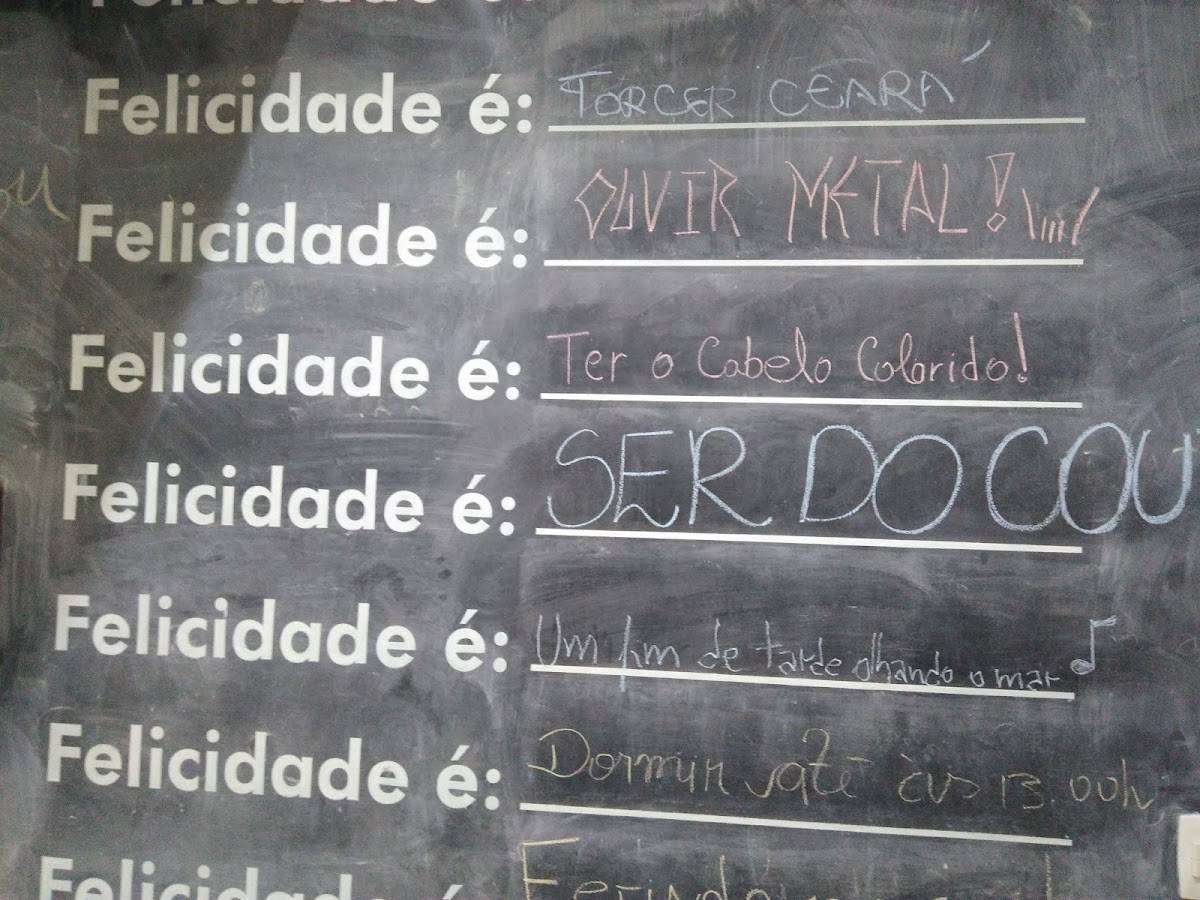 Felicidade é:
Felicidade é: TORCER CEARÁ
Felicidade é: OUVIR METAL! \,,,,/
Felicidade é: Ter o Cabelo Colorido!
Felicidade é: SER DO COU
Felicidade é: Um fim de tarde olhando o mar ♪
Felicidade é: Dormir até às 13:00h
Felicidade é: